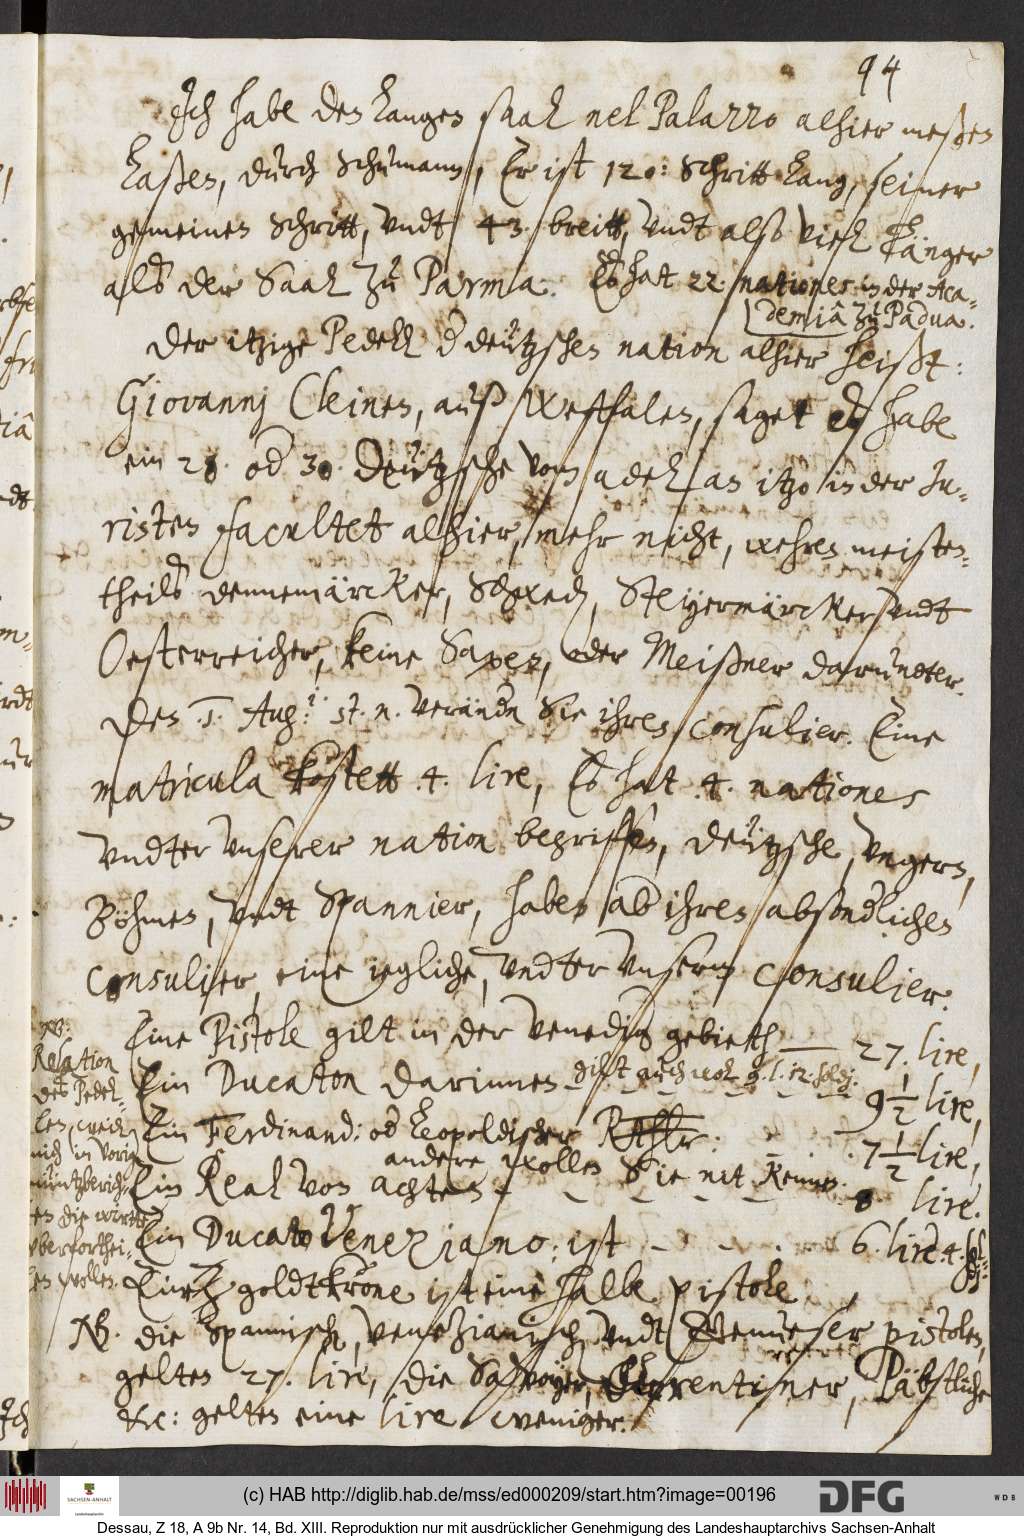 94
Jch habe den langen saal nel Palazzo alhier meßen
laßen, durch Schumann, Er ist 120: Schritt lang, seiner
gemeinen Schritt, vndt 43. breitt, vndt also viel länger
alß der Saal zu Parma. Es hat 22 nationes in der Aca-
demiâ zu Padua.
Der itzige Pedell d deützschen nation alhier heißt:
Giovannj Cleinen, auß Westfalen, saget es habe
ein 28. od 30. Deützsche vom adel an itzo in der Ju-
risten facultet alhier, mehr nicht, wehren meisten-
theilß dennemärcker, Schwed, Steyermärcker vndt
Oesterreicher, keine Saxen, oder Meißner darundter.
Den .1. Augi: st. n. verändn Sie ihren consulier. Eine
matricula kostett .4. lire, Es hat .4. nationes
vndter vnserer nation begriffen, deützsche, vngern,
Böhmen, vndt Spannier, haben ab ihren absondlichen
consulier, eine iegliche, vndter vnserm consulier.
Eine Pistole gilt in der Venedig gebieth 27. lire,
Ein Ducaton darinnen gilt auch wol 9. l. 12. soldj. 9 1/2 lire,
Ein Ferdinand: od Leopoldischer Rthlr: 7 1/2 lire,
andere wollen Sie nit kennen.
Ein Real von achten 8 lire.
Ein Ducato Veneziano: ist 6. lire. 4. sol-
dj:
Eine goldtkrone ist eine halbe pistole.
NB. die Spannisch, venezianisch vndt Genueser pistolen,
gelten 27. lire, die Savoyer, Florentiner, Päbstliche
&c: gelten eine lire weniger.
NB:
Relation
des Pedel-
len, welch
mich in vorig
müntzberich-
ten die wirtt
vberforthei-
len wollen.
(c) HAB http://diglib.hab.de/mss/ed000209/start.htm?image=00196
SACHSEN-ANHALT
Landeshauptarchiv
DFG
W D B
Dessau, Z 18, A 9b Nr. 14, Bd. XIII. Reproduktion nur mit ausdrücklicher Genehmigung des Landeshauptarchivs Sachsen-Anhalt